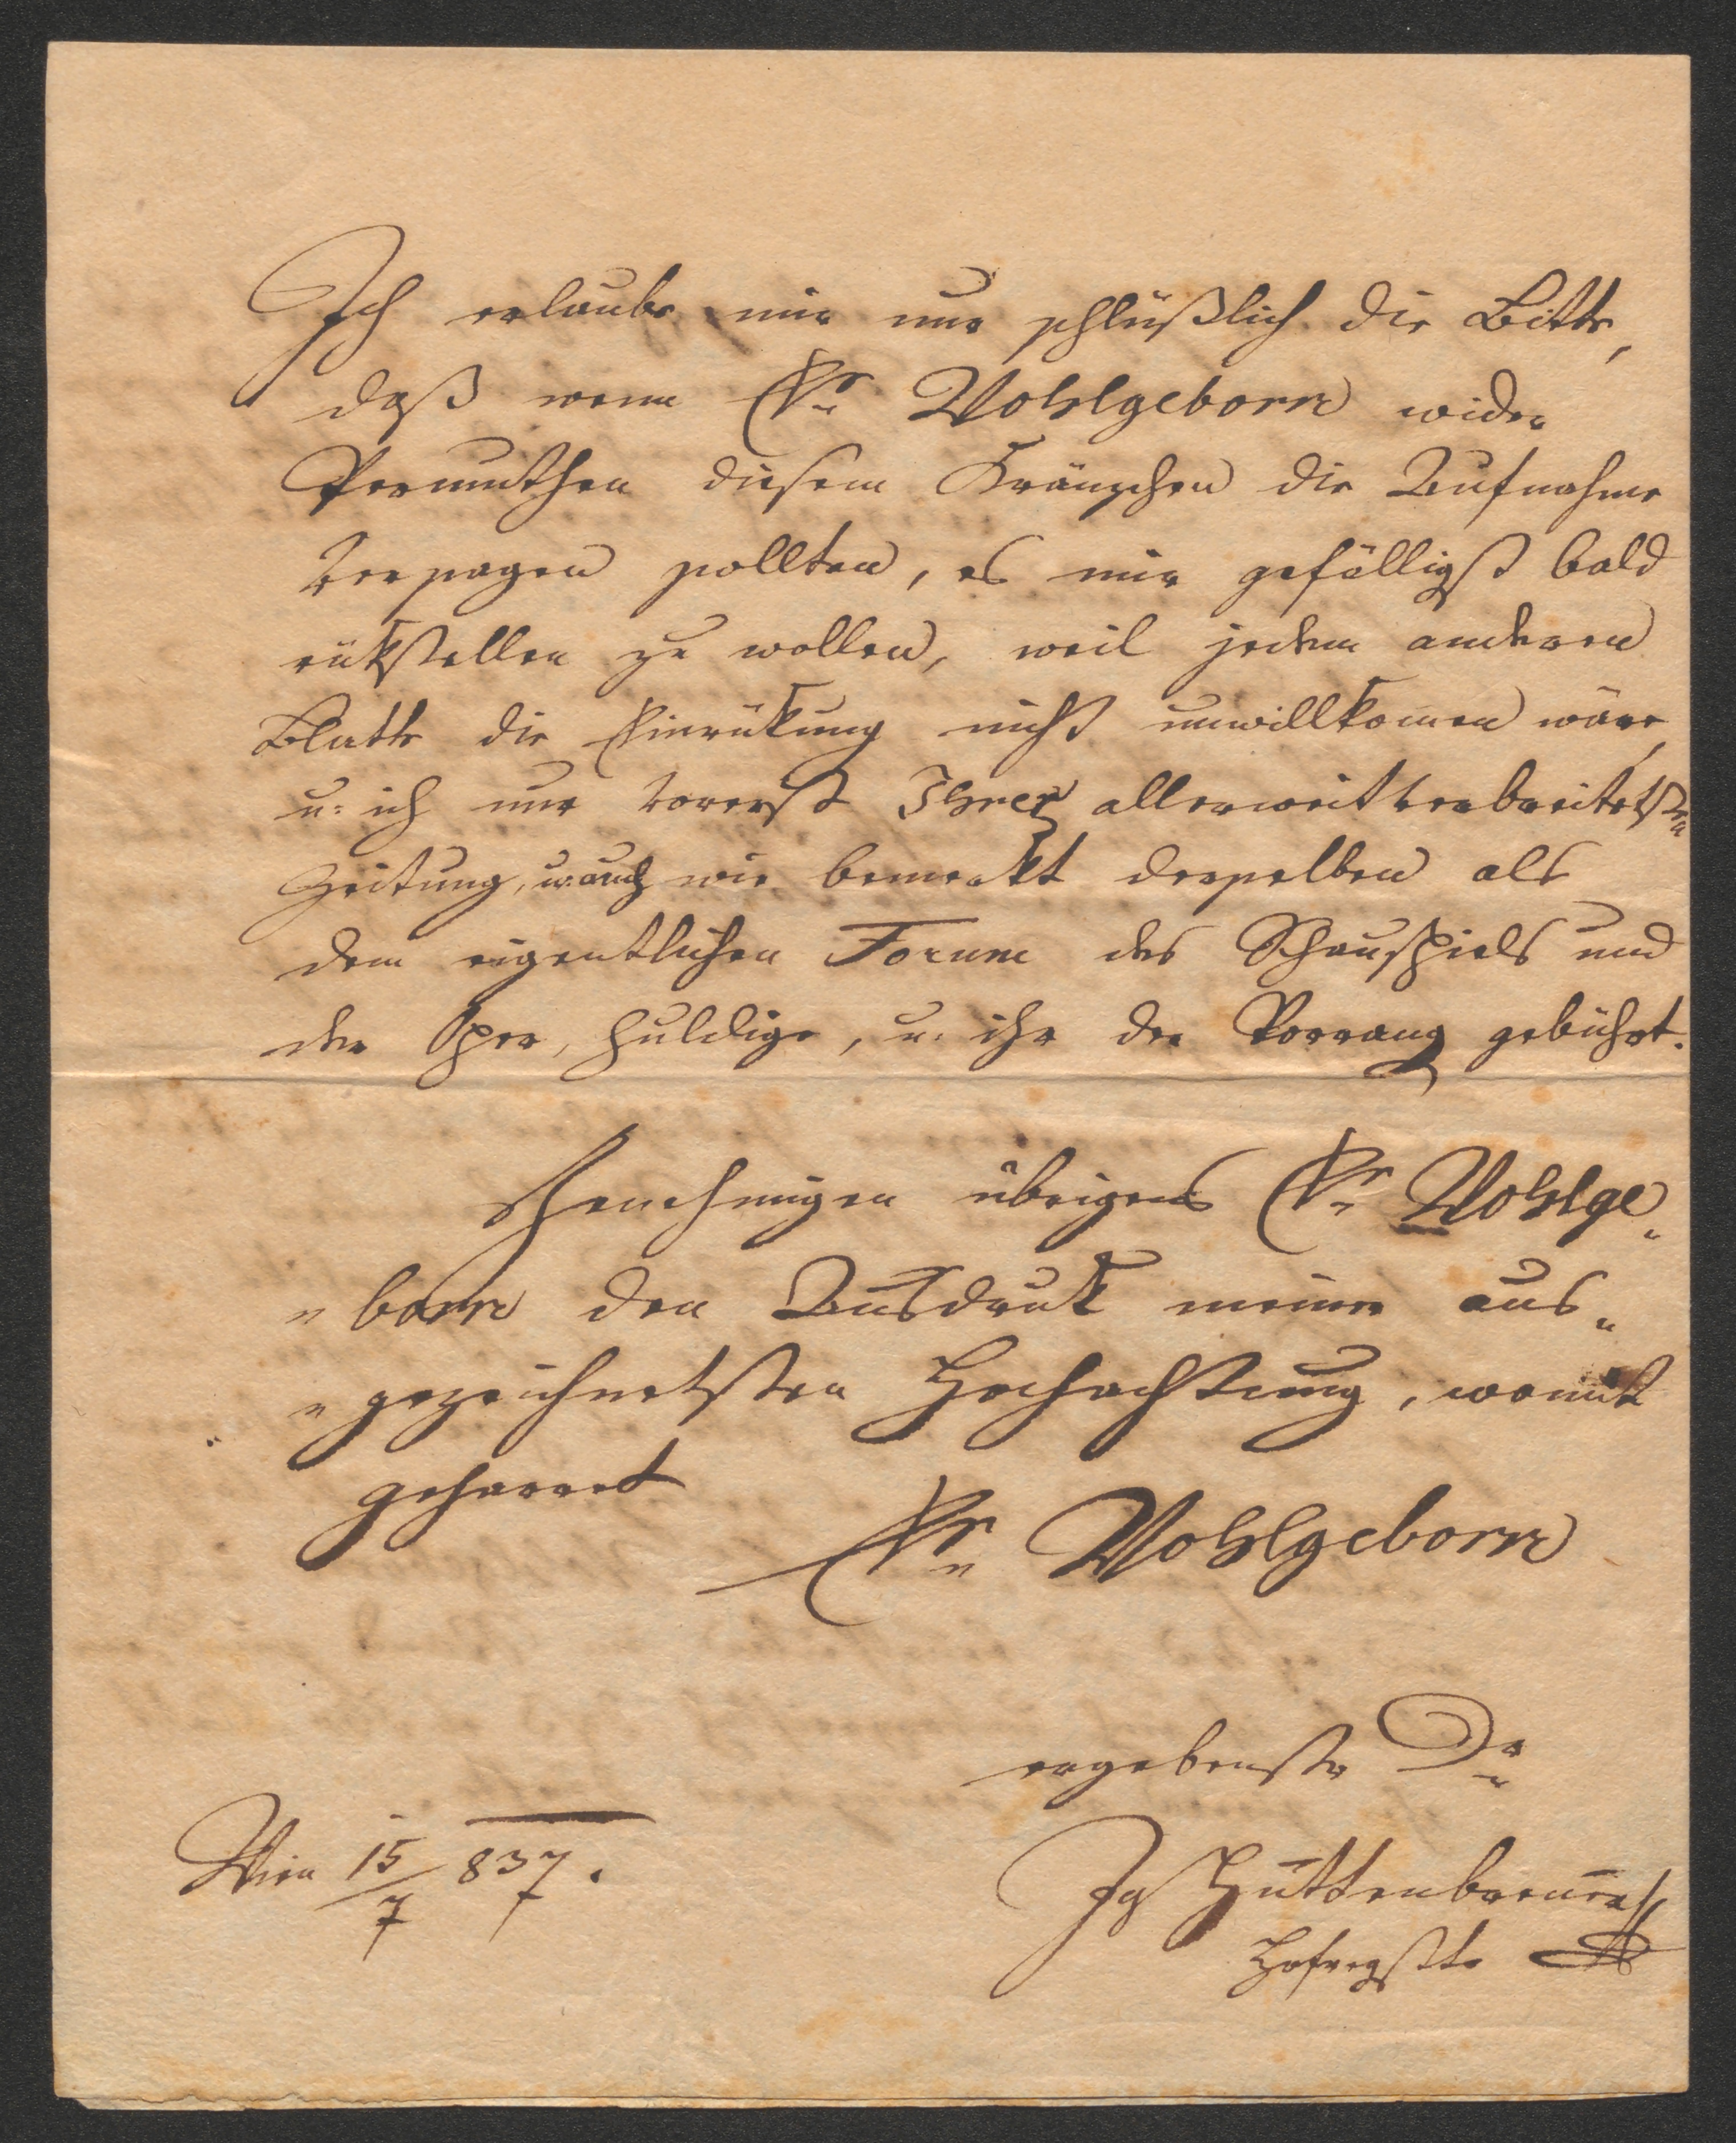 Ich erlaube mir nur schlüßlich die Bitte,
daß wenn Er Wohlgeborn wider
Vermuthen diesem Kränzchen die Aufnahme
versagen sollten, es mir gefälligst bald
rükstellen zu wollen, weil jedem anderen
Blatte die Einrükung nicht unwillkomen wäre,
u: ich nur vorerst Ihrer allerweitverbreitetsten
Zeitung, u. auch wie bemerkt derselben als
dem eigentlichen Forum des Schauspiels und
der Oper, huldige, u. ihr der Vorrang gebührt.
Genehmigen übrigens Er Wohlge„
„born den Ausdruk meiner aus„
„gezeichnetsten Hochachtung, womit
geharret
Er Wohlgeborn
ergebenster Dr
Wien 15/7 837.
Jos Hüttenbrenner
Hofregstte